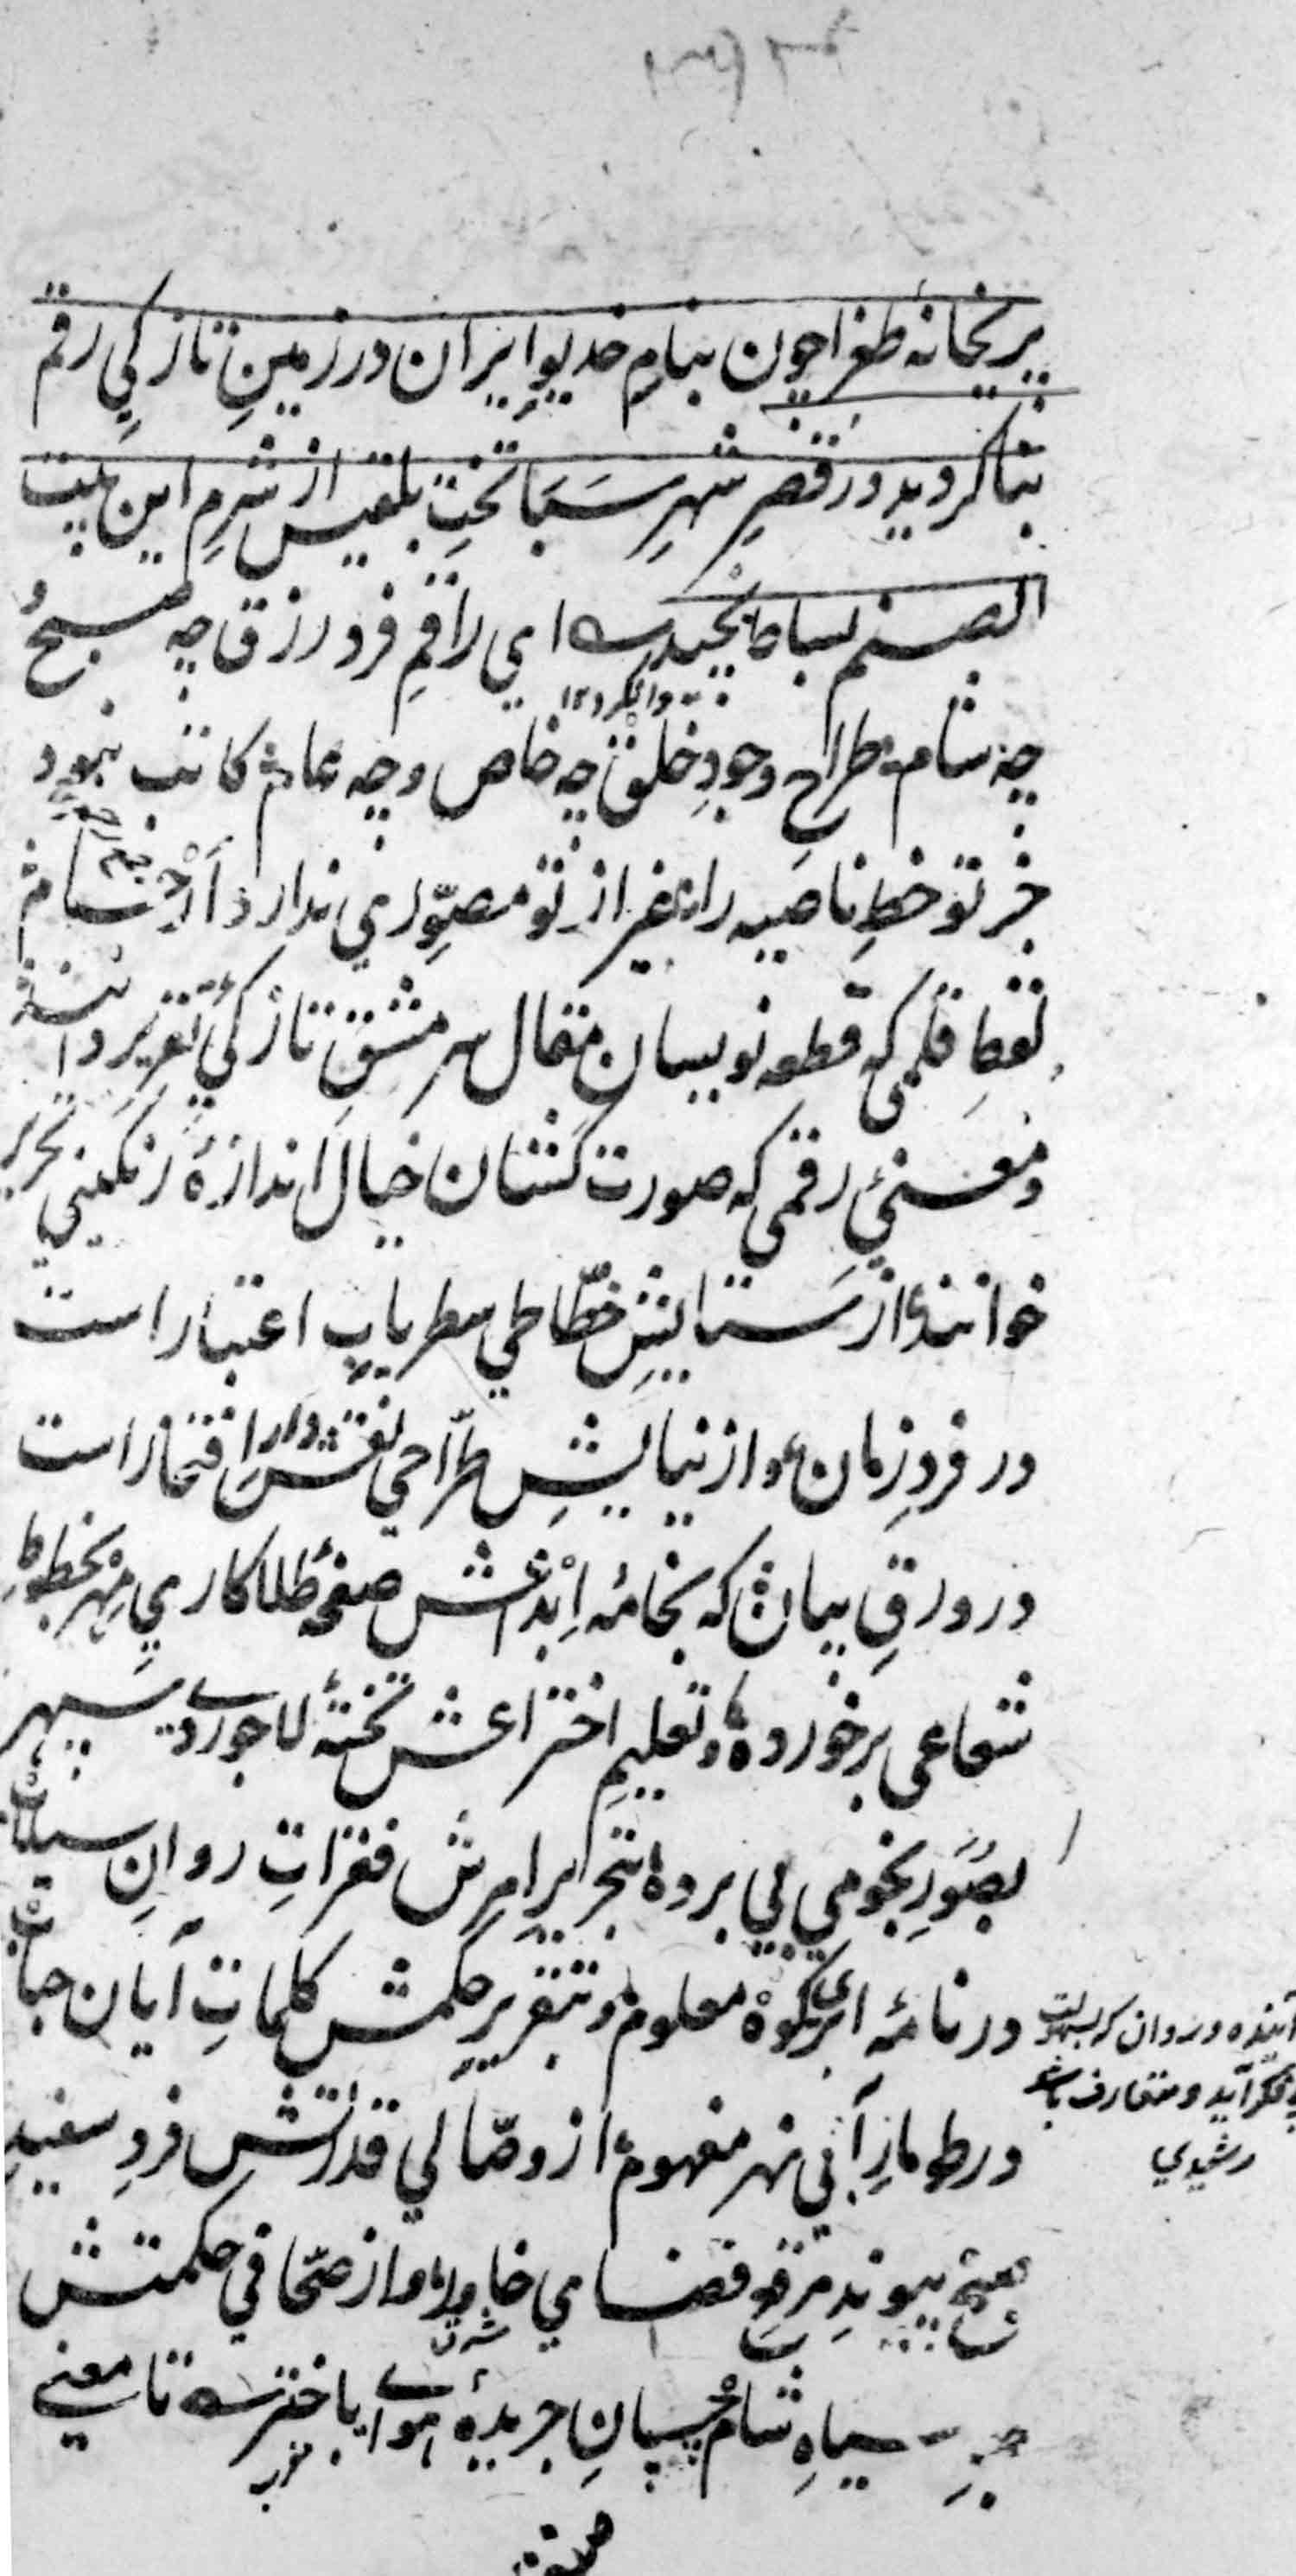 پریخانه طغرا چون بنام خدیو ایران در زمین تازکی رقم
بنا کردید در قصر شهر سبا تخت بلقیس از شرم این بیت
الصنم بساط بچید ای راقم فرد رزق چه صبح و
چه شام طراح وجود خلق چه خاص و چه عام کاتب نبود
جز تو خط ناصیه را غیر از تو مصوری ندارد ارحام
نقطه قلمی که قطعه نویسان مقال سرمشق تازکی تقریر دانند
و معنئ رقمی که صورت کشان خیال اندازهٔ رنکینی تحریر
خوانند از ستایش خطاطی سطر یاب اعتبار است
در فرد زمان و از نیایش طراحی نقش دار افتخار است
در ورق بیان که بخامهٔ ابداعش صفحهٔ طلاکاری مهر بخطوط
شعاعی برخورده و تعلیم اختراعش تختهٔ لاجوردی سپهر
بصور نجومی پی برده بتحریر امرش فقرات روان سیلاب
در نامهٔ ابری کوه معلوم و بتقریر حکمش کلمات آیان حباب
در طومار آبی نهر مفهوم از وصالی قدرتش فرد سفید
صبح پیوند مرقع فضای خاور و از صحافی حکمتش
جزء سیاه شام چسپان جریدهٔ هوای باختر تا معنی
آینده و روان که بسهولت
بفکر آید و متعارف باشد
رشیدی